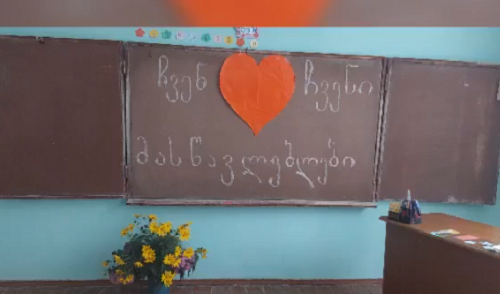 ჩვენ ჩვენი
მასწავლებლები